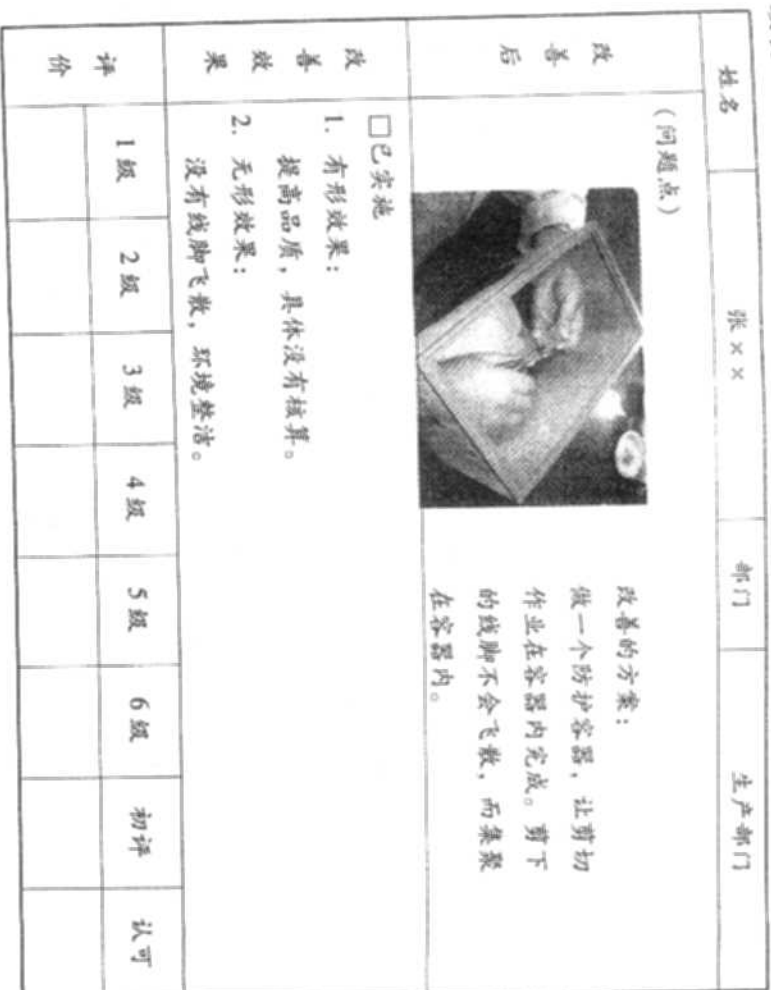 姓名 张×× 部门 生产部门
改善后
(问题点)
改善的方案:
做一个防护容器,让剪切
作业在容器内完成。剪下
的线脚不会飞散,而集聚
在容器内。
改善效果
□已实施
1. 有形效果:
提高品质,具体没有核算。
2. 无形效果:
没有线脚飞散,环境整洁。
评价
1级 2级 3级 4级 5级 6级 初评 认可